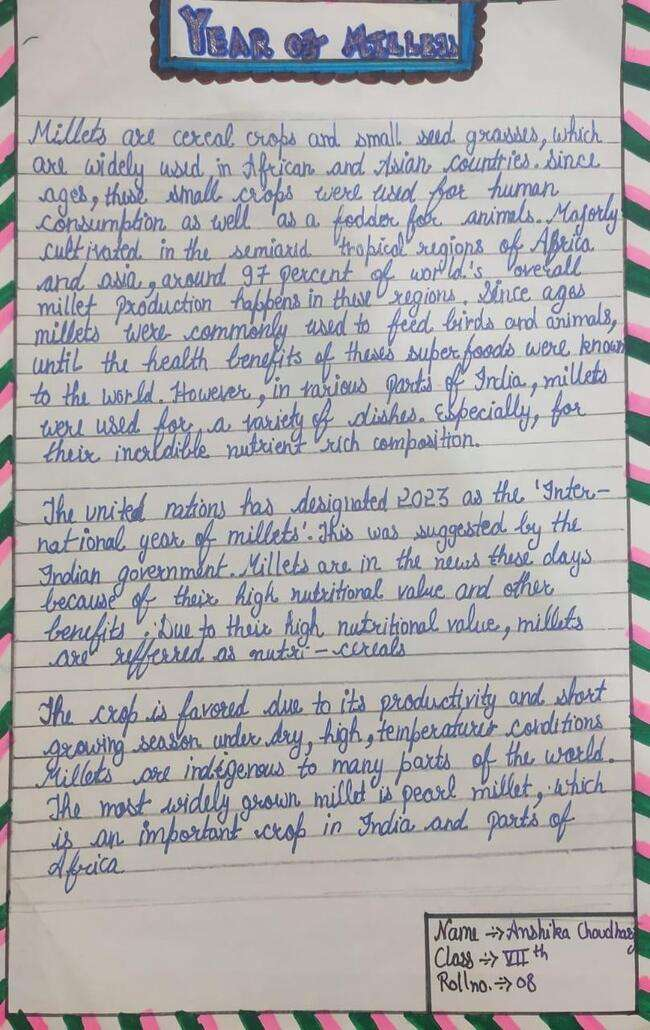 YEAR OF MILLETS
Millets are cereal crops and small seed grasses, which
are widely used in African and Asian countries. Since
ages, these small crops were used for human
consumption as well as a fodder for animals. Majorly
cultivated in the semiarid tropical regions of Africa
and asia, around 97 percent of world's overall
millet production happens in these regions. Since ages
millets were commonly used to feed birds and animals,
until the health benefits of theses superfoods were known
to the world. However, in various parts of India, millets
were used for a variety of dishes. Especially, for
their incredible nutrient rich composition.
The united nations has designated 2023 as the 'Inter-
national year of millets'. This was suggested by the
Indian government. Millets are in the news these days
because of their high nutritional value and other
benefits. Due to their high nutritional value, millets
are refferred as nutri-cereals
The crop is favored due to its productivity and short
growing season under dry, high, temperature conditions
Millets are indigenous to many parts of the world.
The most widely grown millet is pearl millet, which
is an important crop in India and parts of
Africa
Name → Anshika Choudhary
Class → VII th
Roll no. → 08